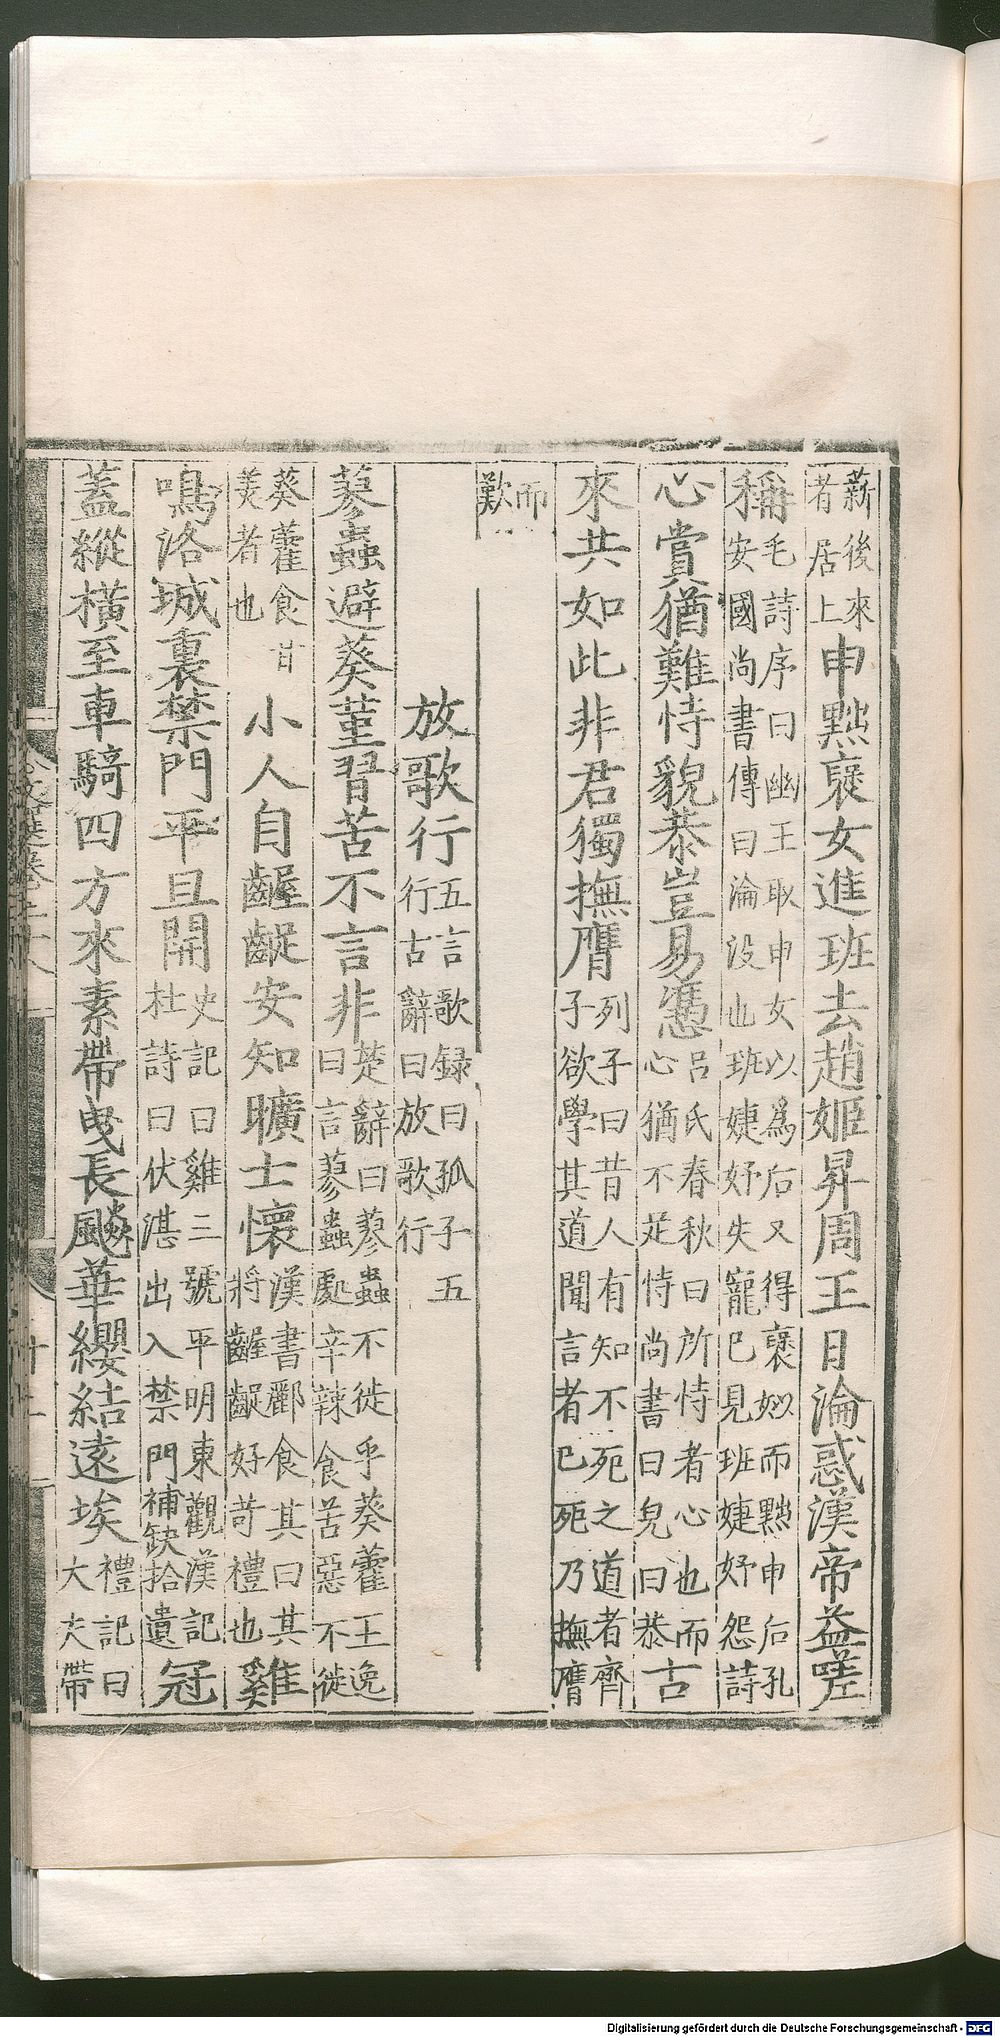 薪後來者居上申黜襃女進班去趙姬昇周王日淪惑漢帝益嗟
稱毛詩序曰幽王取申女以爲后又得襃姒而黜申后孔安國尚書傳曰淪没也班婕妤失寵巳見班婕妤怨詩
心賞猶難恃貌恭豈易憑呂氏春秋曰所恃者心也而心猶不足恃尚書曰皃曰恭古
來共如此非君獨撫膺列子曰昔人有知不死之道者齊子欲學其道聞言者巳死乃撫膺
而歎
放歌行五言歌録曰孤子五行古辭曰放歌行
蓼蟲避葵堇習苦不言非楚辭曰蓼蟲不徙乎葵藿王逸曰言蓼蟲處辛辣食苦惡不徙
葵藿食甘美者也小人自齷齪安知曠士懷漢書酈食其曰其將齷齪好苛禮也雞
鳴洛城裏禁門平旦開史記曰雞三號平明東觀漢記杜詩曰伏湛出入禁門補缺拾遺冠
蓋縱橫至車騎四方來素帶曳長飇華纓結遠埃禮記曰大夫帶
Digitalisierung gefördert durch die Deutsche Forschungsgemeinschaft - DFG